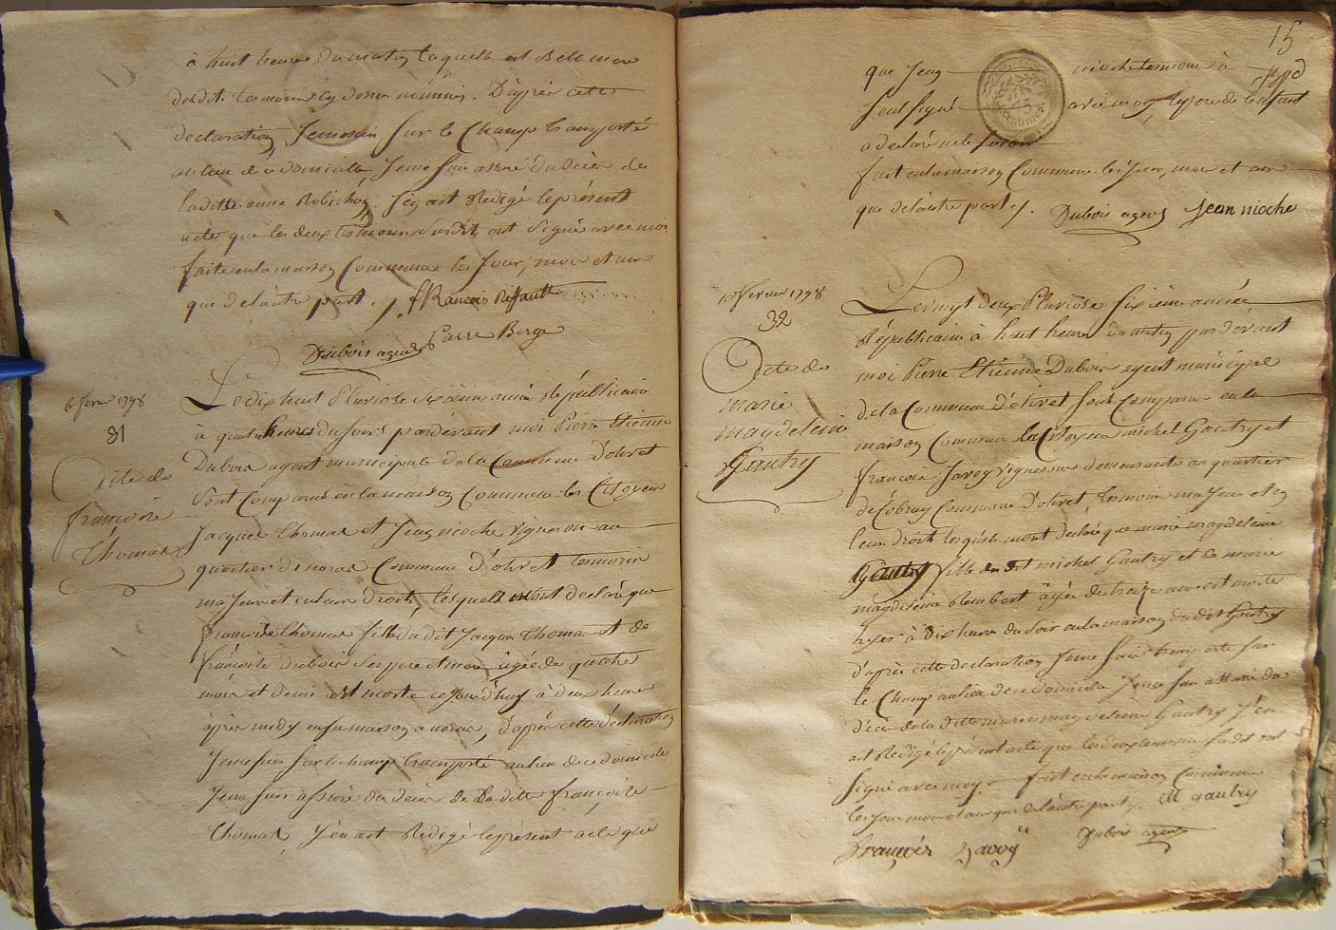 à huit heures du matin laquelle est de la mort
dudit témoins cy dessus nommés. D'après cette
declaration, Je me suis sur le Champ transporté
au lieu de ce domicille Je me suis assuré du décès de
ladite anne Robichon. J'en ait Rédigé le présent
acte que les deux temoins susdit ont Signés avec moi
fait en la maison Commune les Jour, mois et an
que de l'autre part. François Riffault
Dubois agent Pierre Berge
6 fevrier 1798
31
acte de
françoise
Thomas
Le dix huit Pluviose sixième année Républicaine
à quatre heures du soir pardevant moi Pierre Etienne
Dubois agent municipale de la Commune D'olivet
Sont Comparus en la maison Commune les Citoyens
Jacques Thomas et Jean nioche vignerons au
quartier de Commune d'olivet temoins
majeurs et en leurs droits, lesquels mont declaré que
françoise Thomas fille dudit Jacques Thomas et de
françoise Dubois ses pere et mere agée de quatre
mois et demi est morte ce Jourd'huy à deux heures
après midy en sa maison, D'après cette déclaration
Je me suis sur le champ transporté au lieu de ce domicile
Je me suis assuré du décès de Ladite françoise
Thomas J'en ait Rédigé le présent acte que
15
que Jean nioche temoin à
Seul signé avec moy le pere de l'enfant
a declaré ne le savoir
fait en la maison Commune les Jour, mois et an
que de l'autre part. Dubois agent Jean nioche
10 fevrier 1798
32
Acte de
marie
magdeleine
Gautry
Le vingt deux Pluviose sixième année
Républicaine à huit heures du matin pardevant
moi Pierre Etienne Dubois agent municipal
de la Commune D'olivet sont Comparus en la
maison Commune les Citoyens michel Gautry et
françois Savoy vignerons demeurants au quartier
de Commune d'olivet, temoins majeurs et en
leurs droits lesquels mont declaré que marie magdeleine
Gautry fille du dit michel Gautry et de marie
magdeleine Rambert agée de treize ans est morte
hyer à dix heures du soir en la maison du dit Gautry
d'après cette declaration Je me suis transporté sur
le Champ au lieu de ce domicile Je me suis assuré du
décès de la ditte marie magdeleine Gautry J'en
ait Rédigé le présent acte que les deux temoins susdit ont
signé avec moy. fait en la maison Commune
les Jour mois et an que de l'autre part. M gautry
François Savoy Dubois agent